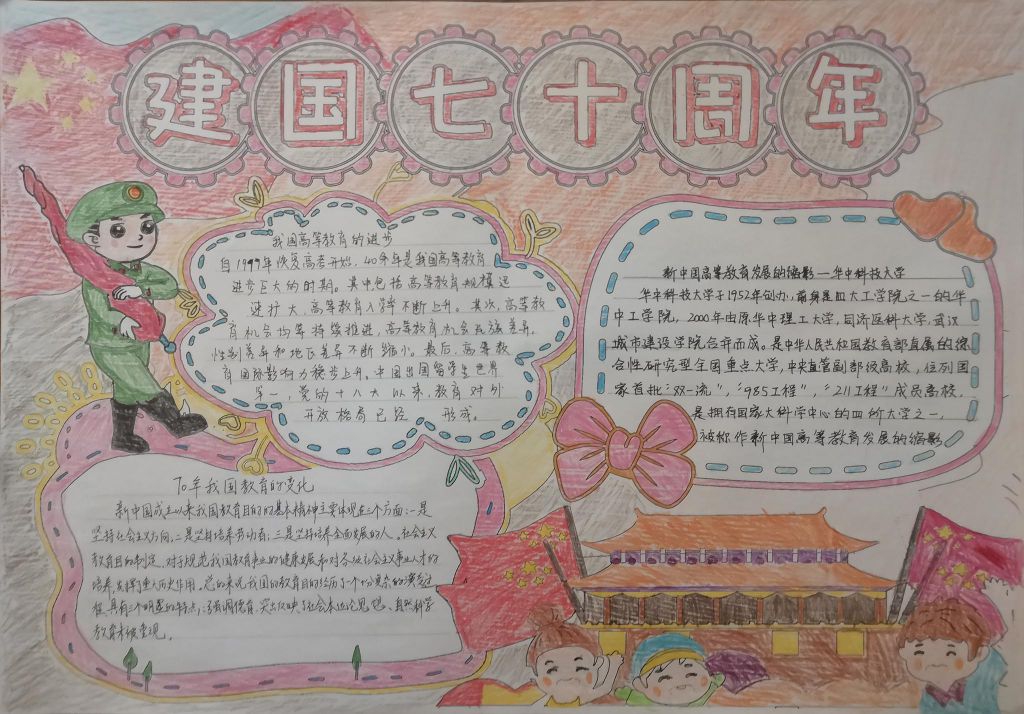 建国七十周年
我国高等教育的进步
自1999年恢复高考开始，40余年是我国高等教育
进步巨大的时期。其中包括高等教育规模迅
速扩大，高等教育入学率不断上升。其次，高等教
育机会均等持续推进，高等教育机会民族差异，
性别差异和地区差异不断缩小。最后，高等教
育国际影响力稳步上升。中国出国留学生世界
第一，党的十八大以来，教育对外
开放格局已经 形成。
新中国高等教育发展的缩影—华中科技大学
华中科技大学于1952年创办，前身是四大工学院之一的华
中工学院，2000年由原华中理工大学，同济医科大学，武汉
城市建设学院合并而成。是中华人民共和国教育部直属的综
合性研究型全国重点大学，中央直管副部级高校，位列国
家首批“双一流”，“985工程”，“211工程”成员高校，
是拥有国家大科学中心的四所大学之一，
被称作新中国高等教育发展的缩影
70年我国教育的变化
新中国成立以来我国教育目的的基本精神主要体现在三个方面：一是
坚持社会主义方向，二是坚持培养劳动者；三是坚持培养全面发展的人，社会主义
教育目的制定，对于规范我国教育事业的健康发展和对各级社会主义事业人才的
培养，发挥了重大历史作用。总的来说我国的教育目的经历了一个十分复杂的演变过
程，具有三个明显的特点；强调德育，突出反映了社会本位论思想、自然科学
教育未被重视。